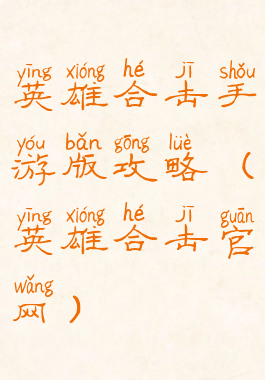 yīng xióng hé jī shǒu
英雄合击手
yóu bǎn gōng lüè
游版攻略（
yīng xióng hé jī guān
英雄合击官
wǎng
网）